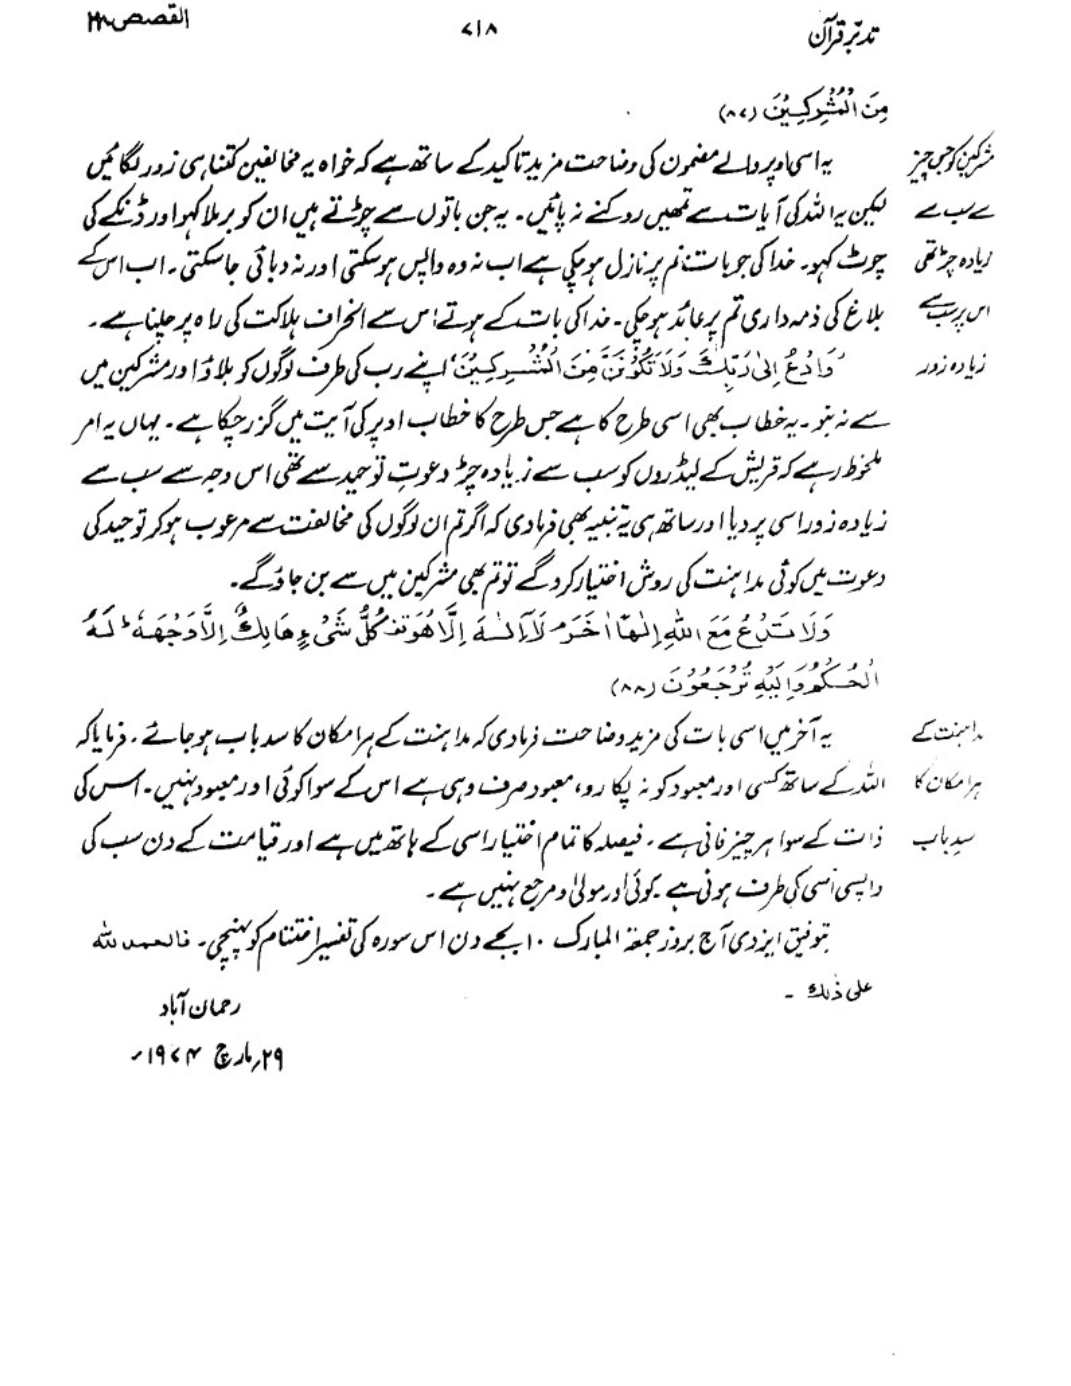 تدبّرِ قرآن ۷۱۸ القصص ۲۸
مِنَ الْمُشْرِكِيْنَ (۸۷)
مشرکین کو جس چیز
سے سب سے
زیادہ چڑ تھی
اس پر سب سے
زیادہ زور
یہ اسی اوپر والے مضمون کی وضاحت مزید تاکید کے ساتھ ہے کہ خواہ یہ مخالفین کتنا ہی زور لگائیں
لیکن یہ اللہ کی آیات سے تمھیں روکنے نہ پائیں۔ یہ جن باتوں سے چڑتے ہیں ان کو برملا کہو اور ڈنکے کی
چوٹ کہو۔ خدا کی جو بات تم پر نازل ہو چکی ہے اب نہ وہ واپس ہو سکتی اور نہ دبائی جا سکتی۔ اب اس کے
بلاغ کی ذمہ داری تم پر عائد ہو چکی۔ خدا کی بات کے ہوتے اس سے انحراف ہلاکت کی راہ پر چلنا ہے۔
’وَادْعُ اِلٰى رَبِّكَ وَلَا تَكُوْنَنَّ مِنَ الْمُشْرِكِيْنَ‘ اپنے رب کی طرف لوگوں کو بلاؤ اور مشرکین میں
سے نہ بنو۔ یہ خطاب بھی اسی طرح کا ہے جس طرح کا خطاب اوپر کی آیت میں گزر چکا ہے۔ یہاں یہ امر
ملحوظ رہے کہ قریش کے لیڈروں کو سب سے زیادہ چڑ دعوتِ توحید سے تھی اس وجہ سے سب سے
زیادہ زور اسی پر دیا اور ساتھ ہی یہ تنبیہ بھی فرما دی کہ اگر تم ان لوگوں کی مخالفت سے مرعوب ہو کر توحید کی
دعوت میں کوئی مداہنت کی روش اختیار کرو گے تو تم بھی مشرکین میں سے بن جاؤ گے۔
وَلَا تَدْعُ مَعَ اللّٰهِ اِلٰهًا اٰخَرَ ۘ لَآ اِلٰهَ اِلَّا هُوَ ۣ كُلُّ شَيْءٍ هَالِكٌ اِلَّا وَجْهَهٗ ۭ لَهُ
الْحُكْمُ وَاِلَيْهِ تُرْجَعُوْنَ (۸۸)
مداہنت کے
ہر امکان کا
سدِّ باب
یہ آخر میں اسی بات کی مزید وضاحت فرما دی کہ مداہنت کے ہر امکان کا سدباب ہو جائے۔ فرمایا کہ
اللہ کے ساتھ کسی اور معبود کو نہ پکارو، معبود صرف وہی ہے اس کے سوا کوئی اور معبود نہیں۔ اس کی
ذات کے سوا ہر چیز فانی ہے۔ فیصلہ کا تمام اختیار اسی کے ہاتھ میں ہے اور قیامت کے دن سب کی
واپسی اُسی کی طرف ہونی ہے۔ کوئی اور مولیٰ و مرجع نہیں ہے۔
بتوفیق ایزدی آج بروز جمعۃ المبارک ۱۰ بجے دن اس سورہ کی تفسیر اختتام کو پہنچی۔ فالحمد للہ
علی ذٰلك ۔
رحمان آباد
۲۹؍ مارچ ۱۹۷۴ء